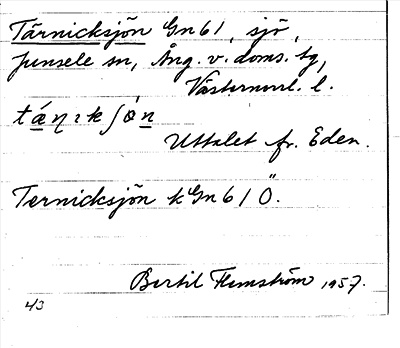 Tärnicksjön Gn 61, sjö,
Junsele sn, Ång. v. doms. tg,
Västernorrl. l.
Uttalet fr. Eden.
Ternicksjön k Gn 61 Ö.
Bertil Flemström 1957.
43